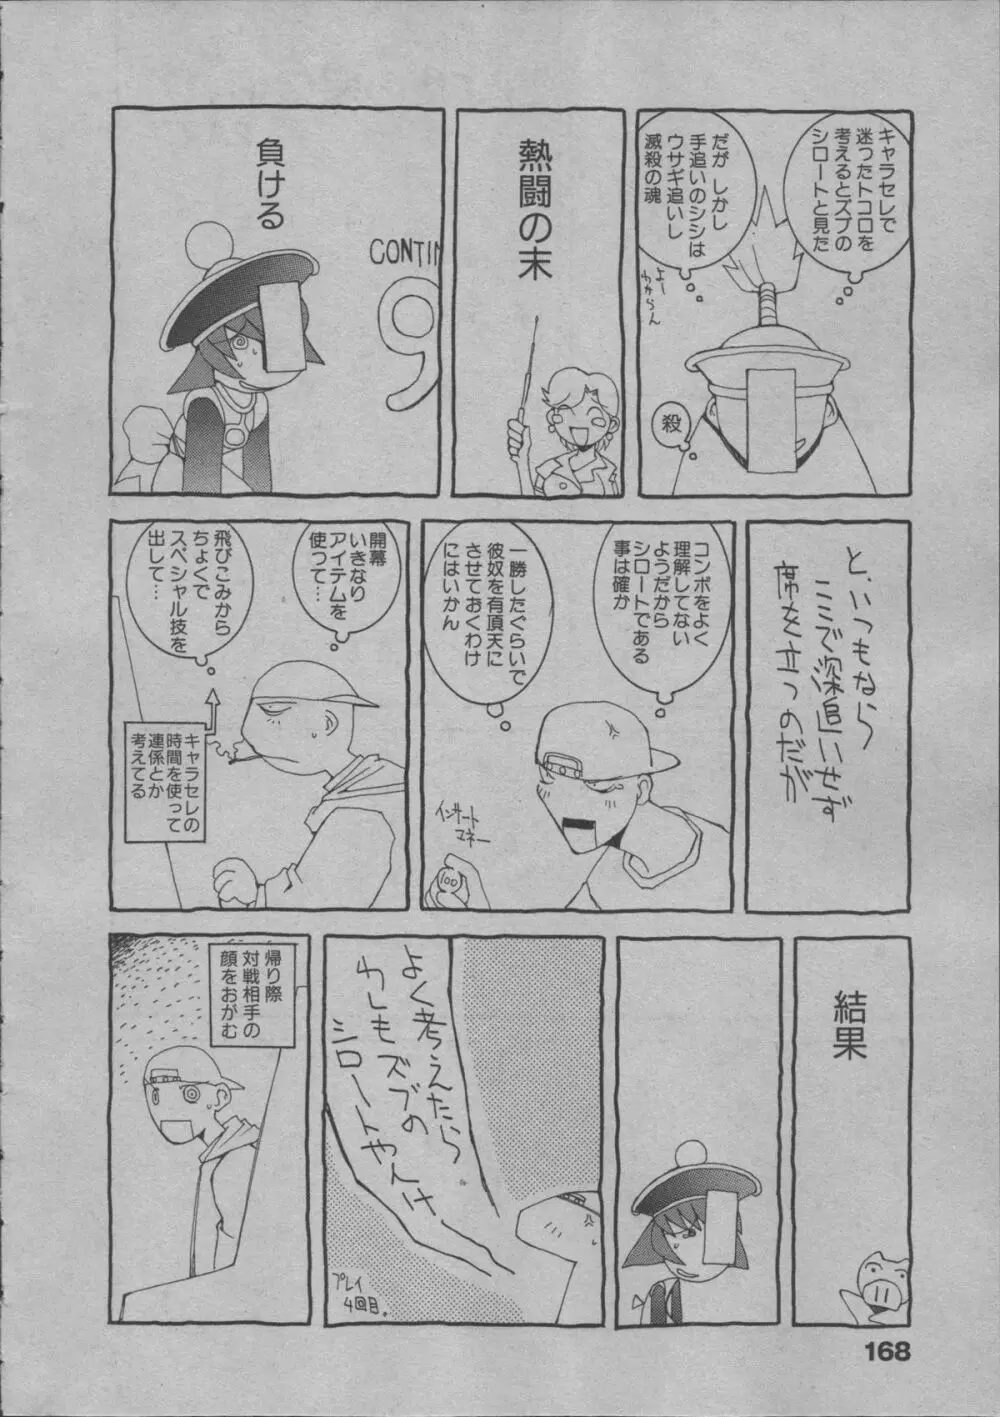 キャラセレで
迷ったトコロを
考えるとズブの
シロートと見た
だが しかし
手追いのシシは
ウサギ追いし
滅殺の魂
よー
わからん
殺
熱闘の末
負ける
CONTIN
9
と、いつもなら
ここで深追いせず
席を立つのだが
コンボをよく
理解してない
ようだから
シロートである
事は確か
一勝したぐらいで
彼奴を有頂天に
させておくわけ
にはいかん
インサート
マネー
100
開幕
いきなり
アイテムを
使って…
飛びこみから
ちょくで
スペシャル技を
出して…
キャラセレの
時間を使って
連係とか
考えてる
結果
よく考えたら
わしもズブの
シロートやんけ
プレイ
4回目。
帰り際
対戦相手の
顔をおがむ
168